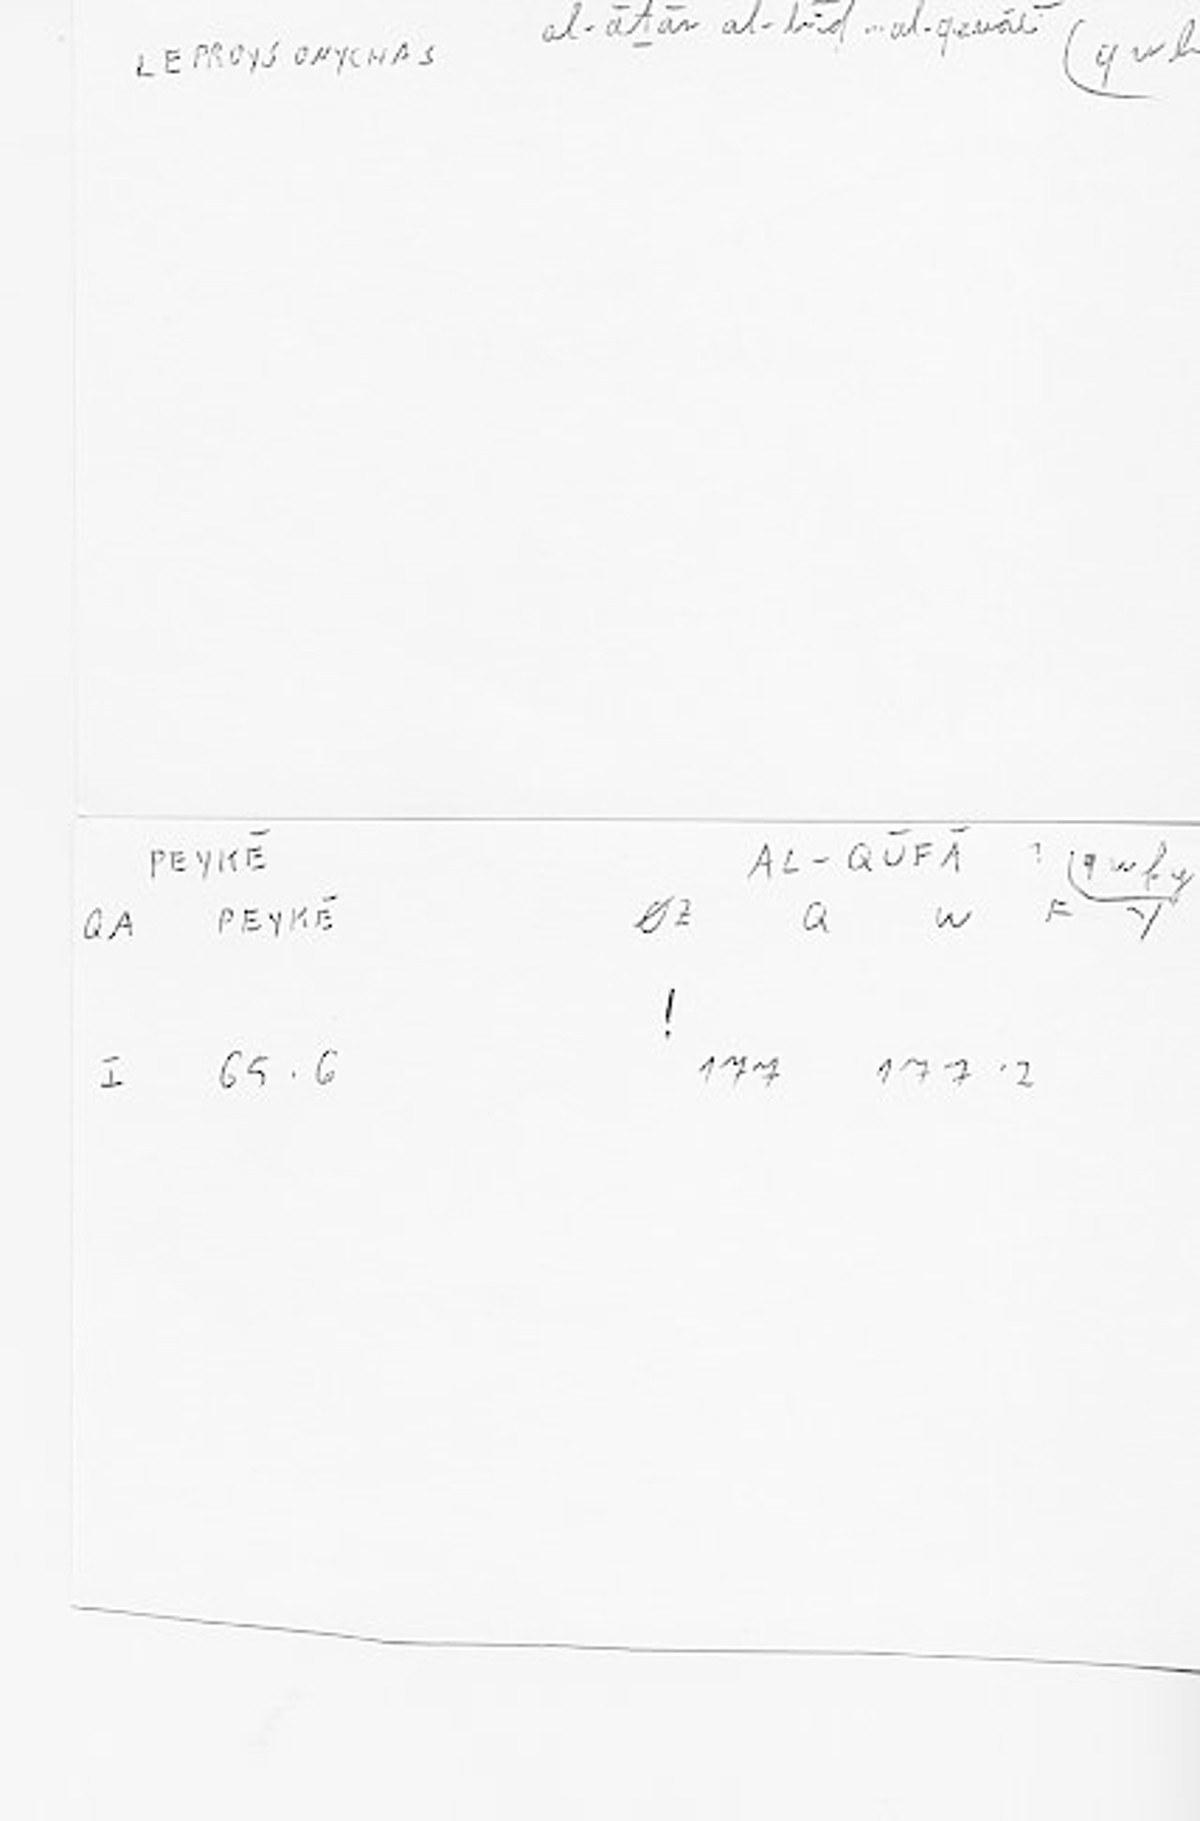 al-āṯār al-bīd al-qewābī (qwb
LEPROYS ONYCHAS
PEYKĒ AL-QŪFĀ ? (qwfy
QA PEYKĒ ØZ Q W F Y
!
I 65.6 177 177.2